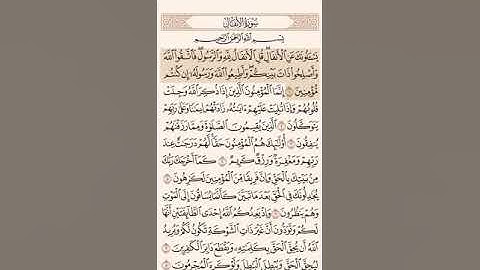 سُورَةُ الأَنفَال
بِسْمِ ٱللَّهِ ٱلرَّحْمَٰنِ ٱلرَّحِيمِ
يَسْـَٔلُونَكَ عَنِ ٱلْأَنفَالِ ۖ قُلِ ٱلْأَنفَالُ لِلَّهِ وَٱلرَّسُولِ ۖ فَٱتَّقُوا۟ ٱللَّهَ
وَأَصْلِحُوا۟ ذَاتَ بَيْنِكُمْ ۖ وَأَطِيعُوا۟ ٱللَّهَ وَرَسُولَهُۥٓ إِن كُنتُم
مُّؤْمِنِينَ ١ إِنَّمَا ٱلْمُؤْمِنُونَ ٱلَّذِينَ إِذَا ذُكِرَ ٱللَّهُ وَجِلَتْ
قُلُوبُهُمْ وَإِذَا تُلِيَتْ عَلَيْهِمْ ءَايَٰتُهُۥ زَادَتْهُمْ إِيمَٰنًا وَعَلَىٰ رَبِّهِمْ
يَتَوَكَّلُونَ ٢ ٱلَّذِينَ يُقِيمُونَ ٱلصَّلَوٰةَ وَمِمَّا رَزَقْنَٰهُمْ
يُنفِقُونَ ٣ أُو۟لَٰٓئِكَ هُمُ ٱلْمُؤْمِنُونَ حَقًّا ۚ لَّهُمْ دَرَجَٰتٌ عِندَ
رَبِّهِمْ وَمَغْفِرَةٌ وَرِزْقٌ كَرِيمٌ ٤ كَمَآ أَخْرَجَكَ رَبُّكَ
مِنۢ بَيْتِكَ بِٱلْحَقِّ وَإِنَّ فَرِيقًا مِّنَ ٱلْمُؤْمِنِينَ لَكَٰرِهُونَ ٥
يُجَٰدِلُونَكَ فِى ٱلْحَقِّ بَعْدَ مَا تَبَيَّنَ كَأَنَّمَا يُسَاقُونَ إِلَى ٱلْمَوْتِ
وَهُمْ يَنظُرُونَ ٦ وَإِذْ يَعِدُكُمُ ٱللَّهُ إِحْدَى ٱلطَّآئِفَتَيْنِ أَنَّهَا
لَكُمْ وَتَوَدُّونَ أَنَّ غَيْرَ ذَاتِ ٱلشَّوْكَةِ تَكُونُ لَكُمْ وَيُرِيدُ
ٱللَّهُ أَن يُحِقَّ ٱلْحَقَّ بِكَلِمَٰتِهِۦ وَيَقْطَعَ دَابِرَ ٱلْكَٰفِرِينَ ٧
لِيُحِقَّ ٱلْحَقَّ وَيُبْطِلَ ٱلْبَٰطِلَ وَلَوْ كَرِهَ ٱلْمُجْرِمُونَ ٨